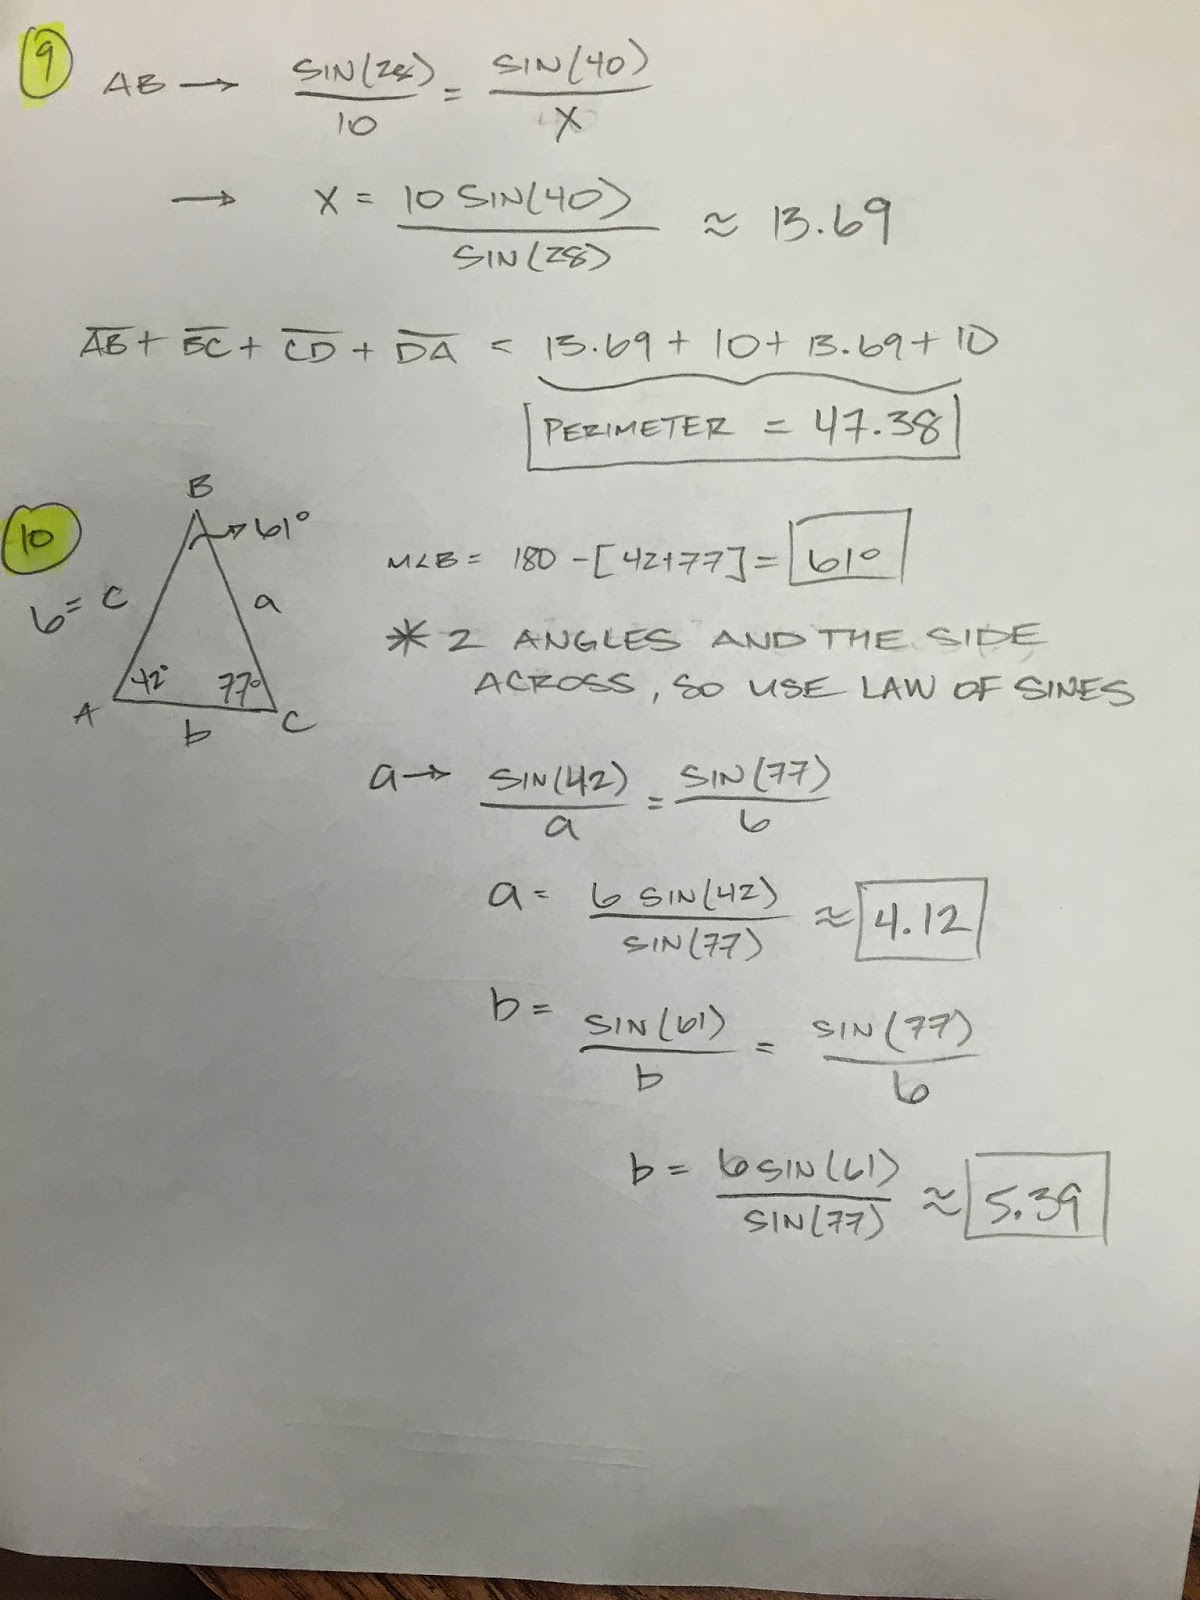 9
AB → SIN(28)/10 = SIN(40)/X
→ X = 10 SIN(40)/SIN(28) ≈ 13.69
AB + BC + CD + DA = 13.69 + 10 + 13.69 + 10
PERIMETER = 47.38
10
B
61°
6 = c
a
42°
77°
A
b
C
M∠B = 180 - [42+77] = 61°
* 2 ANGLES AND THE SIDE
ACROSS, SO USE LAW OF SINES
a → SIN(42)/a = SIN(77)/6
a = 6 SIN(42)/SIN(77) ≈ 4.12
b = SIN(61)/b = SIN(77)/6
b = 6 SIN(61)/SIN(77) ≈ 5.39